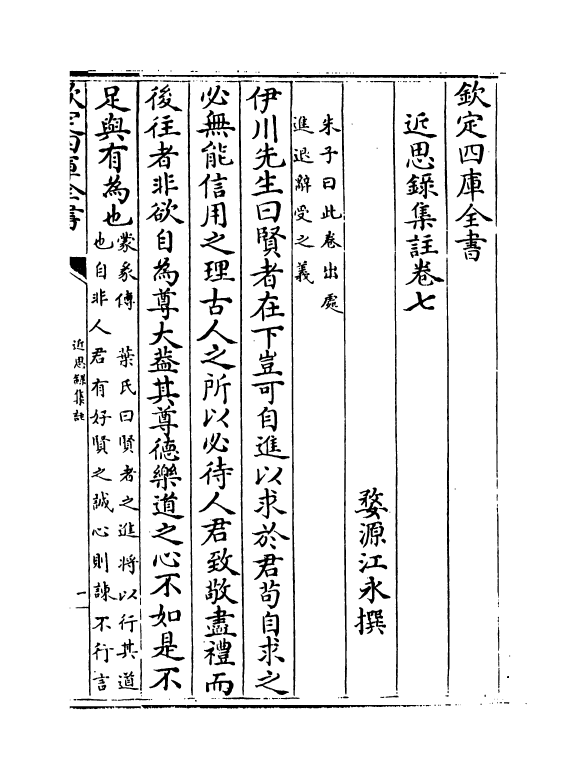 欽定四庫全書
近思録集註卷七
婺源江永撰
朱子曰此卷出處
進退辭受之義
伊川先生曰賢者在下豈可自進以求於君苟自求之
必無能信用之理古人之所以必待人君致敬盡禮而
後往者非欲自為尊大葢其尊德樂道之心不如是不
足與有為也
蒙彖傳　葉氏曰賢者之進將以行其道
也自非人君有好賢之誠心則諫不行言
欽定四庫全書
近思録集註
一